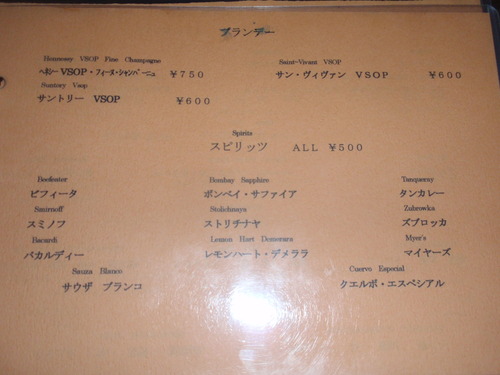 ブランデー
Hennessy VSOP Fine Champagne
Saint-Vivant VSOP
ヘネシー VSOP・フィーヌ・シャンパーニュ ￥750
サン・ヴィヴァン VSOP ￥600
Suntory Vsop
サントリー VSOP ￥600
Spirits
スピリッツ ALL ￥500
Beefeater
Bombay Sapphire
Tanqueray
ビフィータ
ボンベイ・サファイア
タンカレー
Smirnoff
Stolichnaya
Zubrowka
スミノフ
ストリチナヤ
ズブロッカ
Bacardi
Lemon Hart Demerara
Myer's
バカルディー
レモンハート・デメララ
マイヤーズ
Sauza Blanco
Cuervo Especial
サウザ ブランコ
クエルボ・エスペシアル